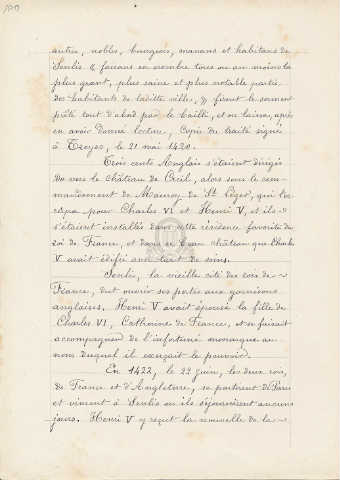 autres, nobles, bourgeois, manans et habitans de
Senlis « faisans en nombre tous ou au moins la
plus grant, plus saine et plus notable partie
des habitants de laditte ville, » firent le serment
prêté tout d'abord par le bailli, et on laissa, après
en avoir donné lecture, copie du traité signé
à Troyes, le 21 mai 1420.
Trois cents Anglais s'étaient dirigés
vers le château de Creil, alors sous le com-
mandement de Mauroy de St Léger, qui l'oc-
cupa pour Charles VI et Henri V, et ils
s'étaient installés dans cette résidence favorite du
roi de France, et dans ce beau château que Charles
V avait édifié avec tant de soins.
Senlis, la vieille cité des rois de
France, dut ouvrir ses portes aux garnisons
anglaises. Henri V avait épousé la fille de
Charles VI, Catherine de France, et se faisait
accompagner de l'infortuné monarque au
nom duquel il exerçait le pouvoir.
En 1422, le 22 juin, les deux rois,
de France et d'Angleterre, se partirent de Paris
et vinrent à Senlis où ils séjournèrent aucuns
jours. Henri V y reçut la nouvelle de la